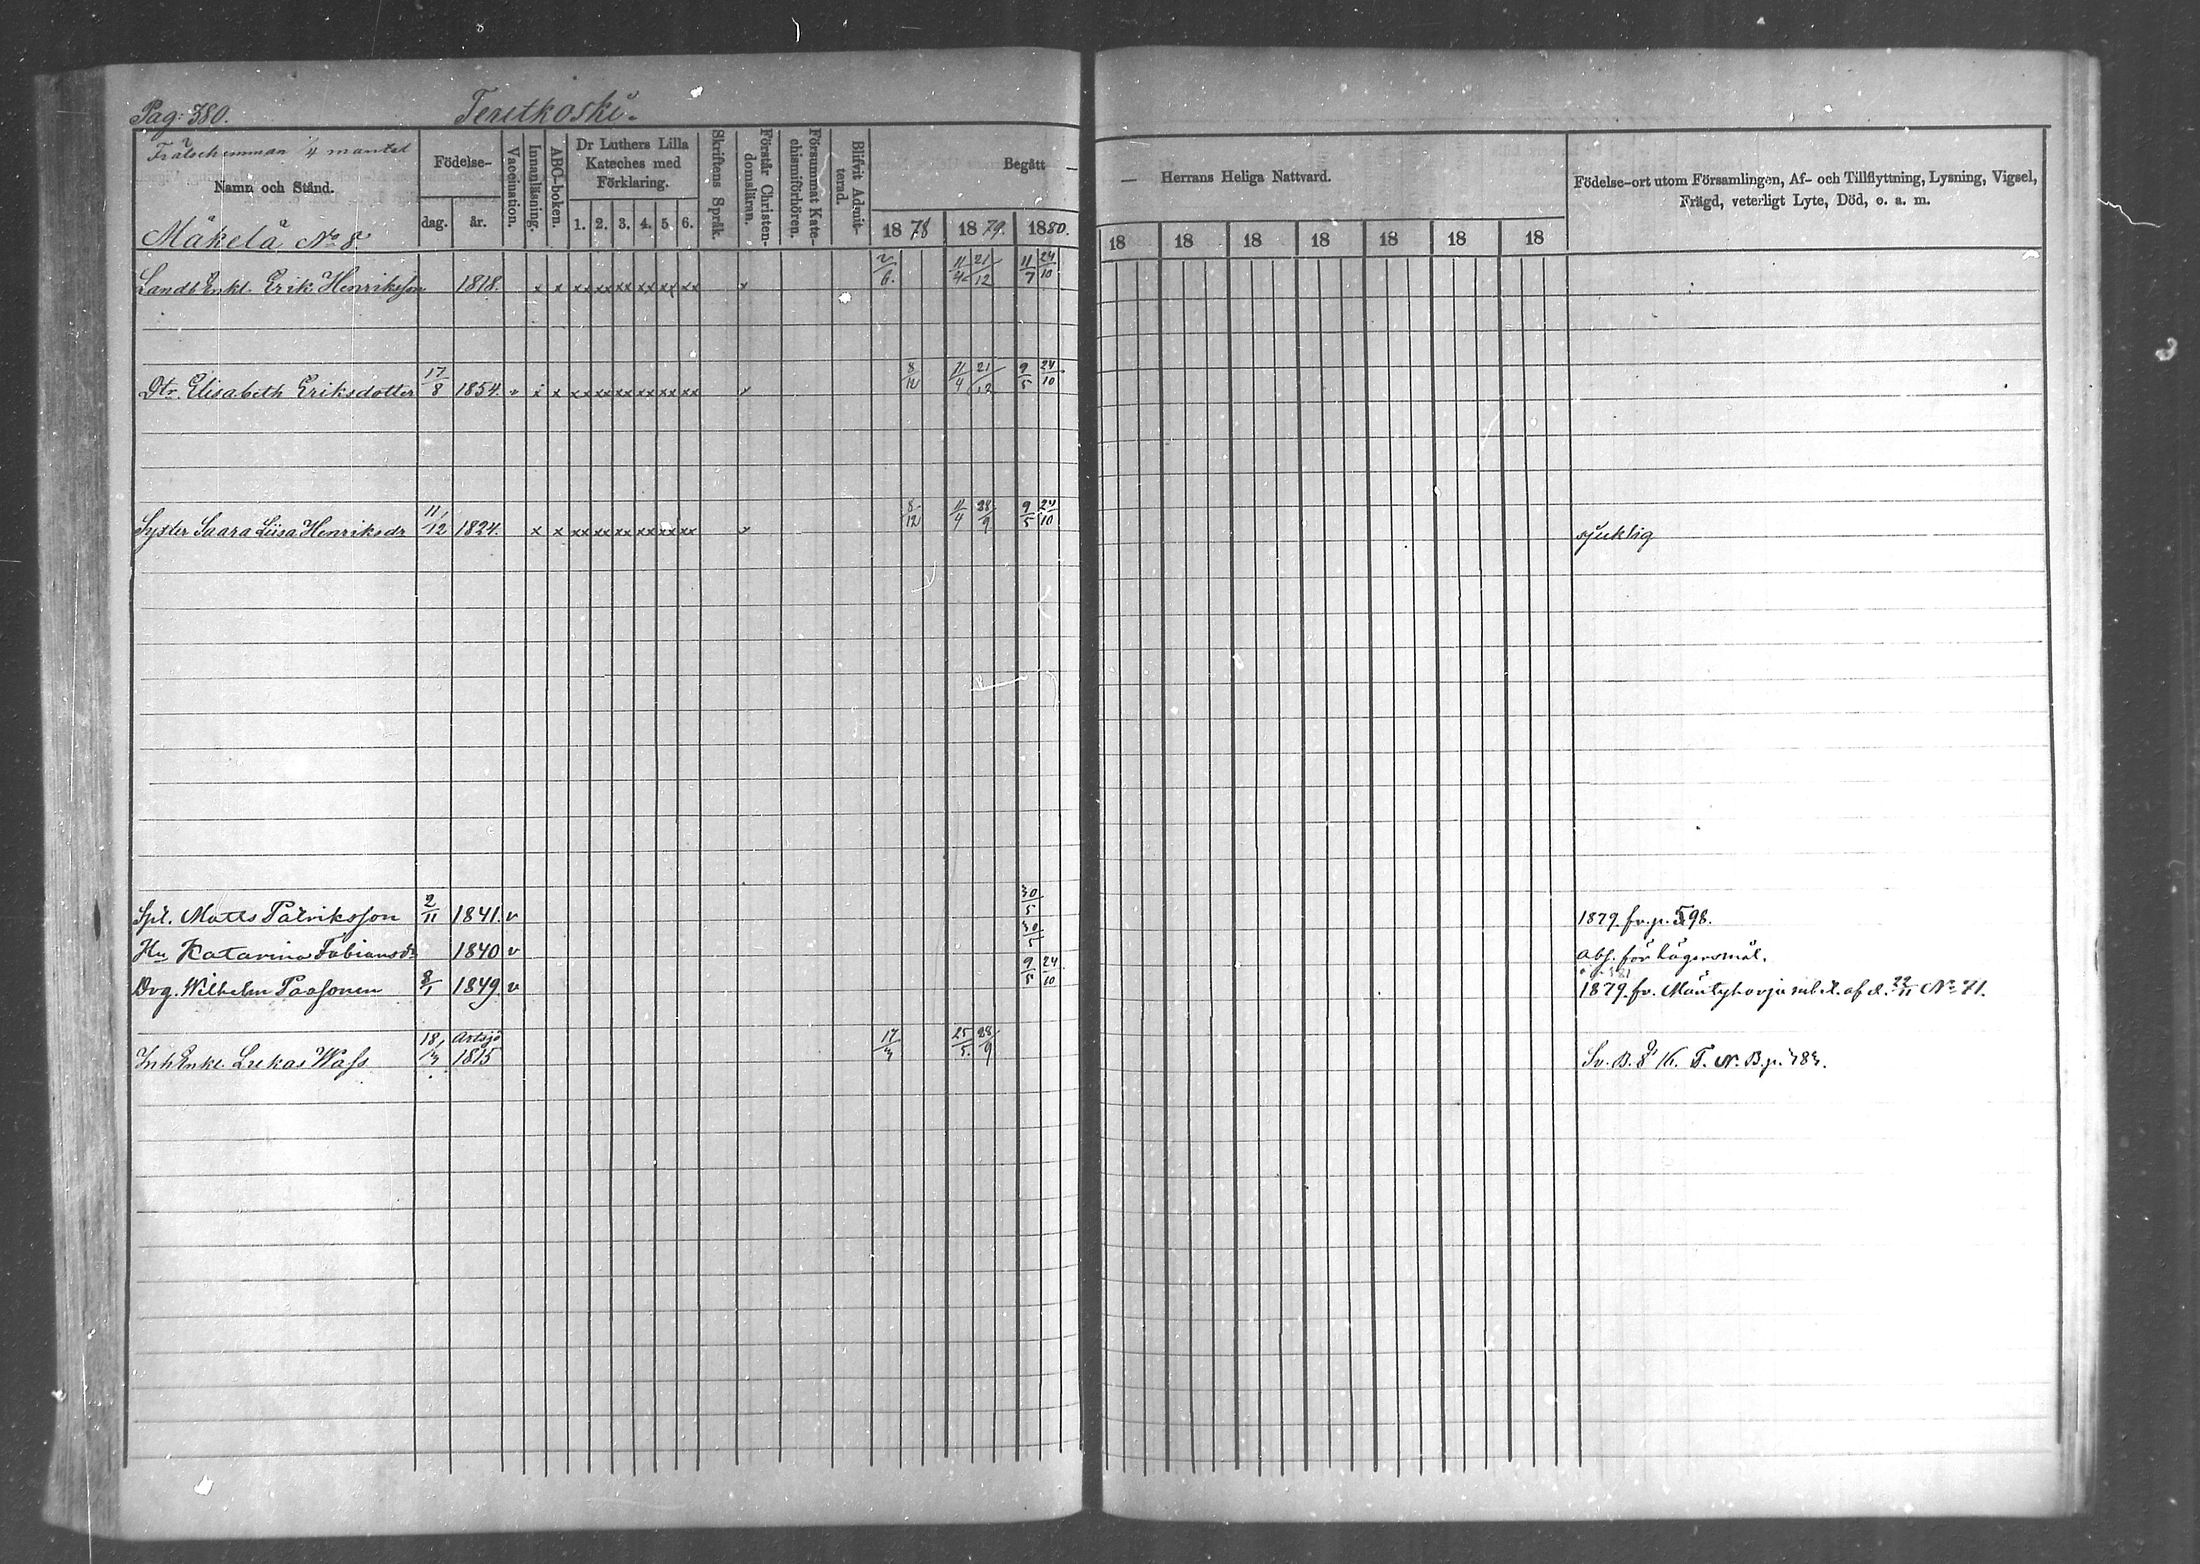 Pag: 380. Teritkoski.
Frälsehemman 1/4 mantal
Namn och Stånd.
Födelse-
dag. år.
Vaccination.
Innanläsning.
ABC-boken.
Dr Luthers Lilla
Kateches med
Förklaring.
1. 2. 3. 4. 5. 6.
Skriftens Språk.
Förstår Christen-
domsläran.
Försummat Kate-
chismiförhören.
Blifvit Admit-
terad.
Begått —
1878 1879. 1880.
— Herrans Heliga Nattvard.
18 18 18 18 18 18 18
Födelse-ort utom Församlingen, Af- och Tillflyttning, Lysning, Vigsel,
Frägd, veterligt Lyte, Död, o. a. m.
Mäkelä No 8
Landb Enkl. Erik Henriksson 1818. x x xx xx xx xx xx xx x 2/6. 11/4 21/12 11/7 24/10
Dtr. Elisabeth Eriksdotter 17/8 1854. v x x xx xx xx xx xx xx x 8/12 11/4 21/12 9/5 24/10
Syster Saara Liisa Henriksdr 11/12 1824. x x xx xx xx xx xx xx x 8/12 11/4 28/9 9/5 24/10 sjuklig
Spl. Matts Patriksson 2/11 1841. v 30/5 1879. fr. p. 598.
Hu Katarina Fabiansdr 1840 v 30/5 abs. för lägersmål.
Drg. Wilhelm Paasonen 8/1 1849 v 9/5 24/10 1879. fr. Mäntyharju m bet. af d. 22/11 No 71.
Inh Enkl. Lukas Wass 18/3 Artsjö 1815 17/3 25/5. 28/9